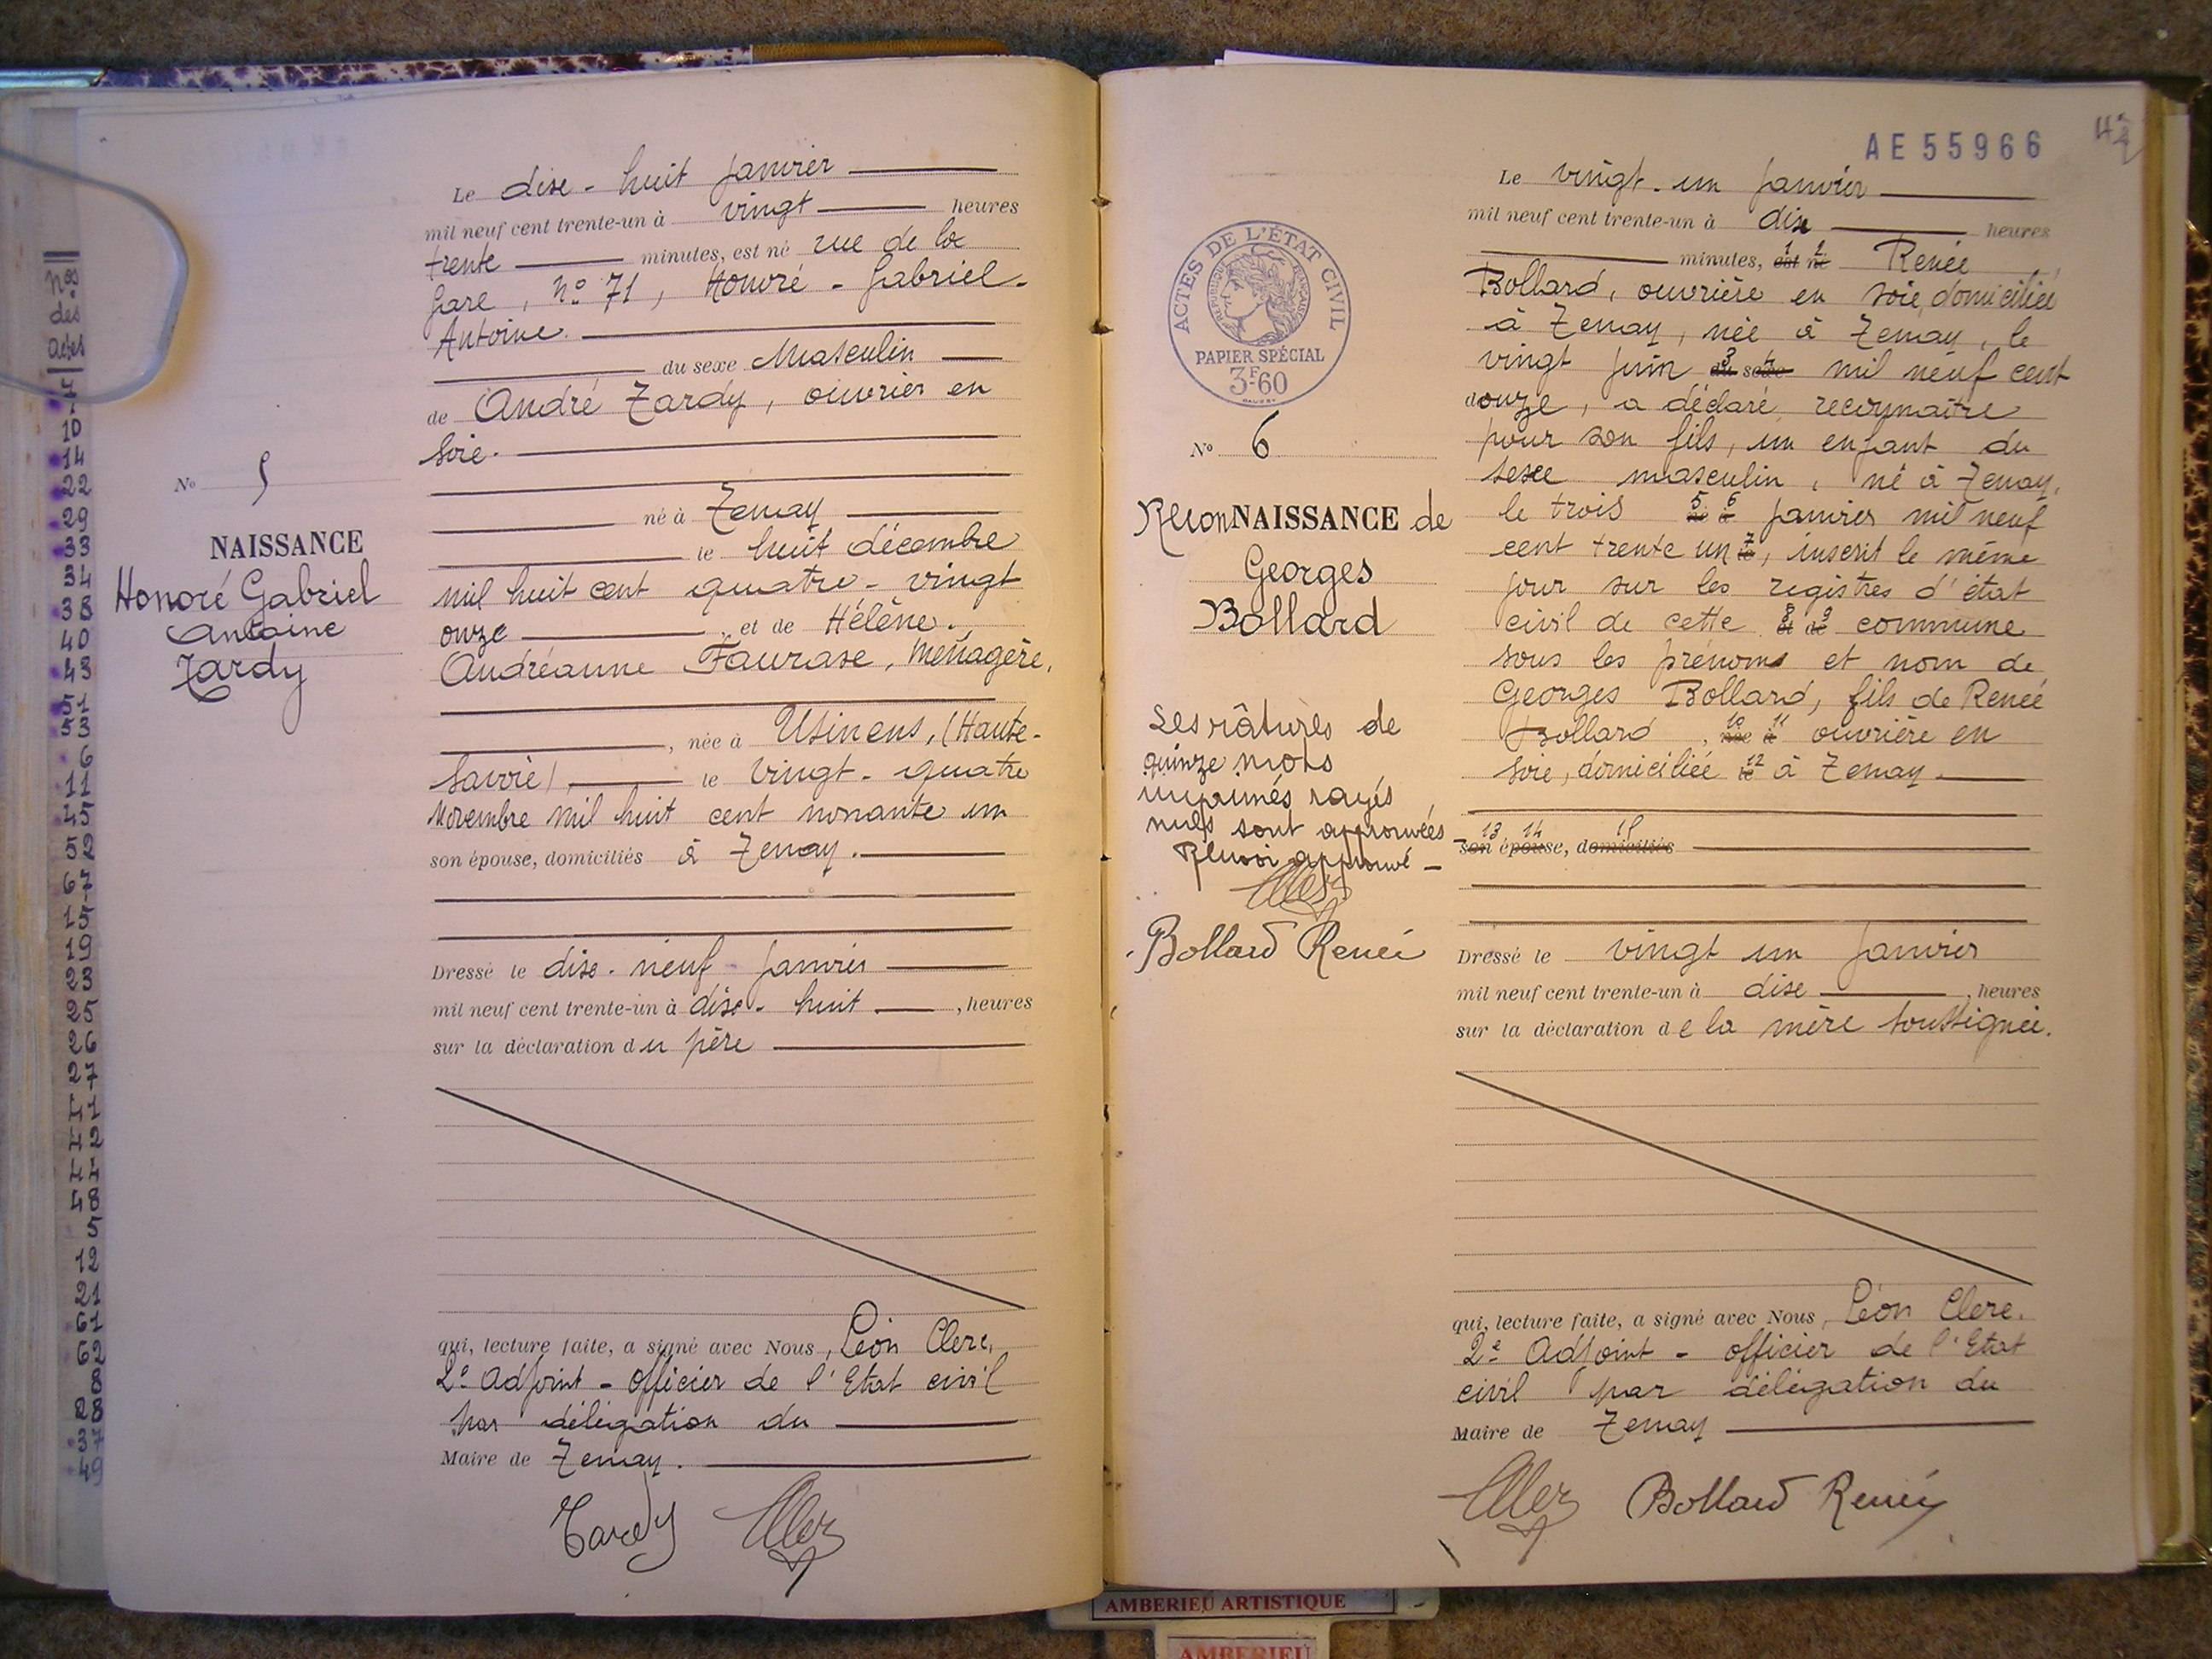 Nos
des
actes
10
14
22
29
33
34
38
40
43
51
53
6
11
45
52
67
15
19
23
25
26
27
41
42
44
48
5
12
21
61
62
8
28
37
49
No 5
NAISSANCE
Honoré Gabriel
Antoine
Tardy
Le dix-huit janvier
mil neuf cent trente-un à vingt heures
trente minutes, est né rue de la
gare, No 71, Honoré-Gabriel-
Antoine
du sexe Masculin
de André Tardy, ouvrier en
soie.
né à Tenay
le huit décembre
mil huit cent quatre-vingt
onze et de Hélène
Andréanne Faurax, ménagère,
, née à Usinens, (Haute-
Savoie) le vingt-quatre
novembre mil huit cent nonante un
son épouse, domiciliés à Tenay.
Dressé le dix-neuf janvier
mil neuf cent trente-un à dix-huit , heures
sur la déclaration du père
qui, lecture faite, a signé avec Nous, Léon Clerc,
2e Adjoint - officier de l'Etat civil
par délégation du
Maire de Tenay.
Tardy
AE 55966
ACTES DE L'ÉTAT CIVIL
RÉPUBLIQUE FRANÇAISE
PAPIER SPÉCIAL
3F.60
No 6
ReconNAISSANCE de
Georges
Bollard
Les râtures de
quinze mots
imprimés rayés
nuls sont approuvées
Renvoi approuvé -
Bollard Renée
Le vingt-un janvier
mil neuf cent trente-un à dix heures
minutes, est 1 né 2 Renée
Bollard, ouvrière en soie, domiciliée
à Tenay, née à Tenay, le
vingt juin du 3 sexe 4 mil neuf cent
douze, a déclaré reconnaître
pour son fils, un enfant du
sexe masculin, né à Tenay,
le trois né 5 à 6 janvier mil neuf
cent trente un le 7, inscrit le même
jour sur les registres d'état
civil de cette et 8 de 9 commune
sous les prénoms et nom de
Georges Bollard, fils de Renée
Bollard , née 10 à 11 ouvrière en
soie, domiciliée le 12 à Tenay.
son 13 épouse 14, domiciliés 15
Dressé le vingt un janvier
mil neuf cent trente-un à dix , heures
sur la déclaration de la mère soussignée.
qui, lecture faite, a signé avec Nous, Léon Clerc.
2e Adjoint - officier de l'Etat
civil par délégation du
Maire de Tenay
Bollard Renée
AMBERIEU ARTISTIQUE
AMBERIEU